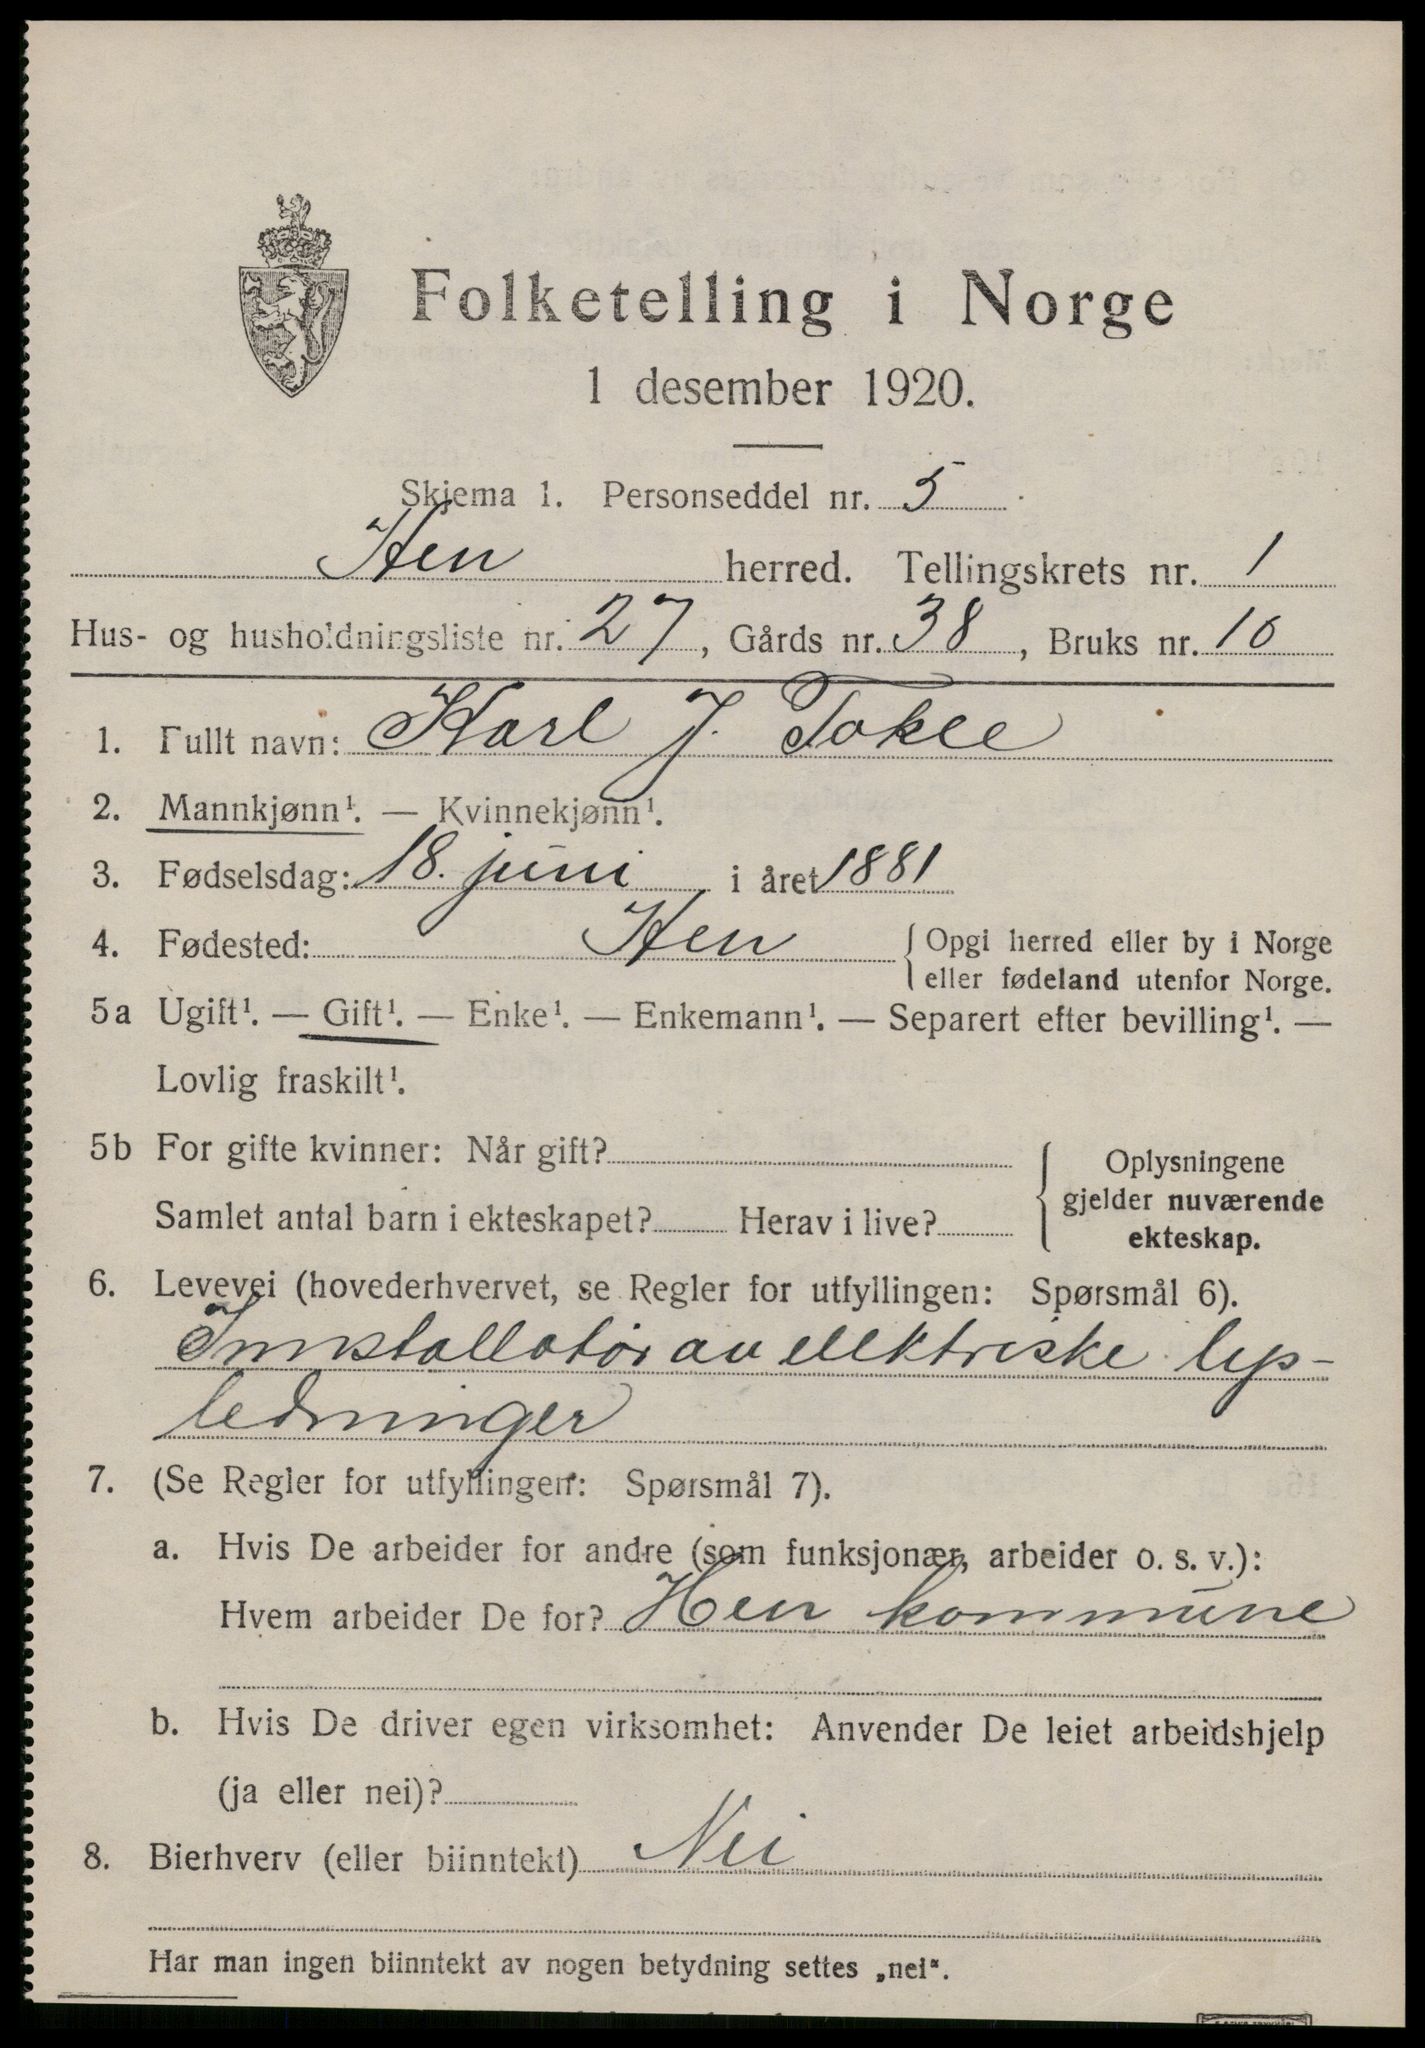 Folketelling i Norge
1 desember 1920.
Skjema 1. Personseddel nr. 5
Hen herred. Tellingskrets nr. 1
Hus- og husholdningsliste nr. 27, Gårds nr. 38, Bruks nr. 10
1. Fullt navn: Karl J. Tokle
2. Mannkjønn¹. — Kvinnekjønn¹.
3. Fødselsdag: 18. juni i året 1881
4. Fødested: Hen { Opgi herred eller by i Norge
eller fødeland utenfor Norge.
5a Ugift¹. — Gift¹. — Enke¹. — Enkemann¹. — Separert efter bevilling¹. —
Lovlig fraskilt¹.
5b For gifte kvinner: Når gift?
Samlet antal barn i ekteskapet? Herav i live?
{ Oplysningene
gjelder nuværende
ekteskap.
6. Levevei (hovederhvervet, se Regler for utfyllingen: Spørsmål 6).
Innstallatör av elektriske lys-
ledninger
7. (Se Regler for utfyllingen: Spørsmål 7).
a. Hvis De arbeider for andre (som funksjonær, arbeider o. s. v.):
Hvem arbeider De for? Hen kommune
b. Hvis De driver egen virksomhet: Anvender De leiet arbeidshjelp
(ja eller nei)?
8. Bierhverv (eller biinntekt) Nei
Har man ingen biinntekt av nogen betydning settes „nei".